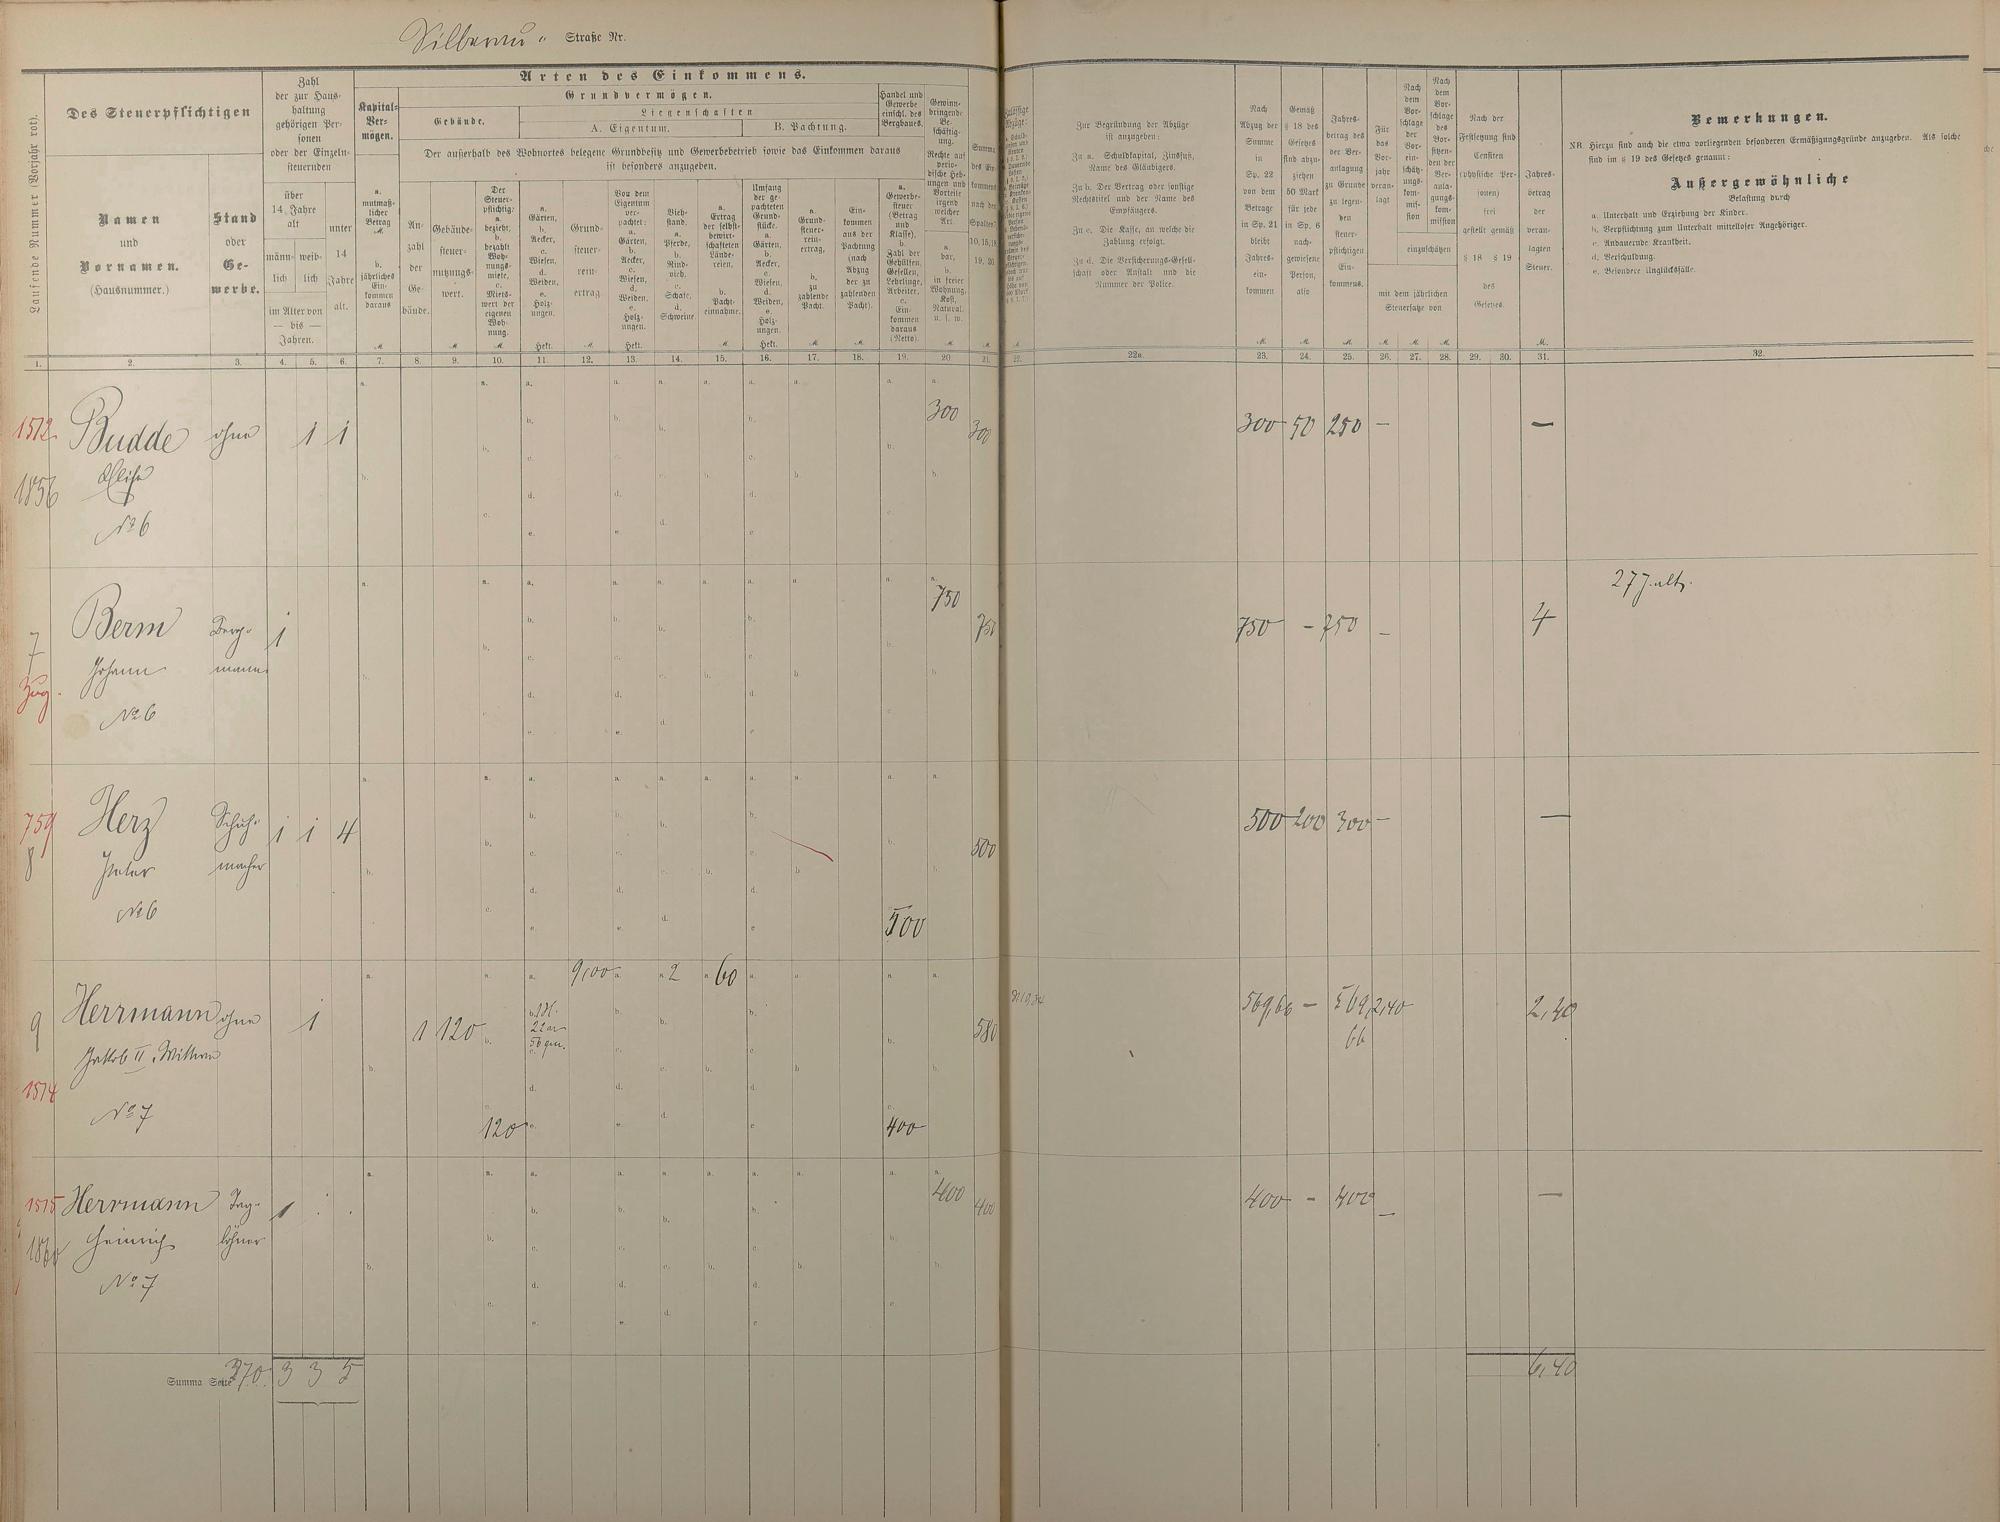 Silberau- Straße Nr.
Laufende Nummer (Vorjahr rot).
Des Steuerpflichtigen
Namen
und
Vornamen.
(Hausnummer.)
Stand
oder
Ge-
werbe.
Zahl
der zur Haus-
haltung
gehörigen Per-
sonen
oder der Einzeln-
steuernden
über
14 Jahre
alt
männ-
lich
weib-
lich
unter
14
Jahre
alt.
im Alter von
— bis —
Jahren.
Arten des Einkommens.
Kapital-
Ver-
mögen.
a.
mutmaß-
licher
Betrag
M.
b.
jährliches
Ein-
kommen
daraus
M
Grundvermögen.
Gebäude.
Liegenschaften
A. Eigentum.
B. Pachtung.
Der außerhalb des Wohnortes belegene Grundbesitz und Gewerbebetrieb sowie das Einkommen daraus
ist besonders anzugeben.
An-
zahl
der
Ge-
bäude.
Gebäude-
steuer-
nutzungs-
wert.
M
Der
Steuer-
pflichtige:
a.
bezieht,
b.
bezahlt
Woh-
nungs-
miete,
c.
Miets-
wert der
eigenen
Woh-
nung.
M.
a.
Gärten,
b.
Aecker,
c.
Wiesen,
d.
Weiden,
e.
Holz-
ungen.
Hekt.
Grund-
steuer-
rein-
ertrag
M
Von dem
Eigentum
ver-
pachtet:
a.
Gärten,
b.
Aecker,
c.
Wiesen,
d.
Weiden,
e.
Holz-
ungen.
Hekt.
Vieh-
stand.
a.
Pferde,
b.
Rind-
vieh,
c.
Schafe,
d.
Schweine
a.
Ertrag
der selbst-
bewirt-
schafteten
Lände-
reien,
b.
Pacht-
einnahme.
M
Umfang
der ge-
pachteten
Grund-
stücke.
a.
Gärten,
b.
Aecker,
c.
Wiesen,
d.
Weiden,
e.
Holz-
ungen.
Hekt.
a.
Grund-
steuer-
rein-
ertrag,
b.
zu
zahlende
Pacht.
M
Ein-
kommen
aus der
Pachtung
(nach
Abzug
der zu
zahlenden
Pacht).
M
Handel und
Gewerbe
einschl. des
Bergbaues.
a.
Gewerbe-
steuer
(Betrag
und
Klasse),
b.
Zahl der
Gehülfen,
Gesellen,
Lehrlinge,
Arbeiter,
c.
Ein-
kommen
daraus
(Netto).
Gewinn-
bringende
Be-
schäftig-
ung.
Rechte auf
perio-
dische Heb-
ungen und
Vorteile
irgend
welcher
Art.
a.
bar,
b.
in freier
Wohnung,
Kost,
Natural.
u. s. w.
M
Summe
des Ein-
kommens
nach den
Spalten
10, 15, 18,
19, 20.
M
Zur Begründung der Abzüge
ist anzugeben:
Zu a. Schuldkapital, Zinsfuß,
Name des Gläubigers.
Zu b. Der Vertrag oder sonstige
Rechtstitel und der Name des
Empfängers.
Zu c. Die Kasse, an welche die
Zahlung erfolgt.
Zu d. Die Versicherungs-Gesell-
schaft oder Anstalt und die
Nummer der Police.
Nach
Abzug der
Summe
in
Sp. 22
von dem
Betrage
in Sp. 21
bleibt
Jahres-
ein-
kommen
M
Gemäß
§ 18 des
Gesetzes
sind abzu-
ziehen
50 Mark
für jede
in Sp. 6
nach-
gewiesene
Person,
also
M
Jahres-
betrag des
der Ver-
anlagung
zu Grunde
zu legen-
den
steuer-
pflichtigen
Ein-
kommens.
M
Für
das
Vor-
jahr
veran-
lagt
Nach
dem
Vor-
schlage
der
Vor-
ein-
schätz-
ungs-
kom-
mis-
sion
Nach
dem
Vor-
schlage
des
Vor-
sitzen-
den der
Ver-
anla-
gungs-
kom-
mission
einzuschätzen
mit dem jährlichen
Steuersatze von
M M M
Nach der
Festsetzung sind
Censiten
(physische Per-
sonen)
frei
gestellt gemäß
§ 18 § 19
des
Gesetzes.
Jahres-
betrag
der
veran-
lagten
Steuer.
M.
Bemerkungen.
NB. Hierzu sind auch die etwa vorliegenden besonderen Ermäßigungsgründe anzugeben. Als solche
sind im § 19 des Gesetzes genannt:
Außergewöhnliche
Belastung durch
a. Unterhalt und Erziehung der Kinder.
b. Verpflichtung zum Unterhalt mittelloser Angehöriger.
c. Andauernde Krankheit.
d. Verschuldung.
e. Besondere Unglücksfälle.
1. 2. 3. 4. 5. 6. 7. 8. 9. 10. 11. 12. 13. 14. 15. 16. 17. 18. 19. 20 21. 22. 22a. 23. 24. 25. 26. 27. 28. 29. 30. 31. 32.
1512 Budde ohne 1 1 300 300 300 50 250 — —
1856
No 6
27 J. alt.
7 Berm Berg- 1 750 750 750 - 750 - 4
Zug. Johann mann
No 6
759 Herz Schuh- 1 1 4 500 500 200 300 — —
8 Peter macher
No 6
500
9,00 2 60
9 Herrmann ohne 1 1 120 22 ar 580 569,66 - 569, 2,40 2,40
66
Jakob II. Witwe
1514
No 7
120 400
1515 Herrmann Tag- 1 400 400 400 - 400 - —
1860 Heinrich löhner
No 7
Summa Seite 370. 3 3 5 6,40